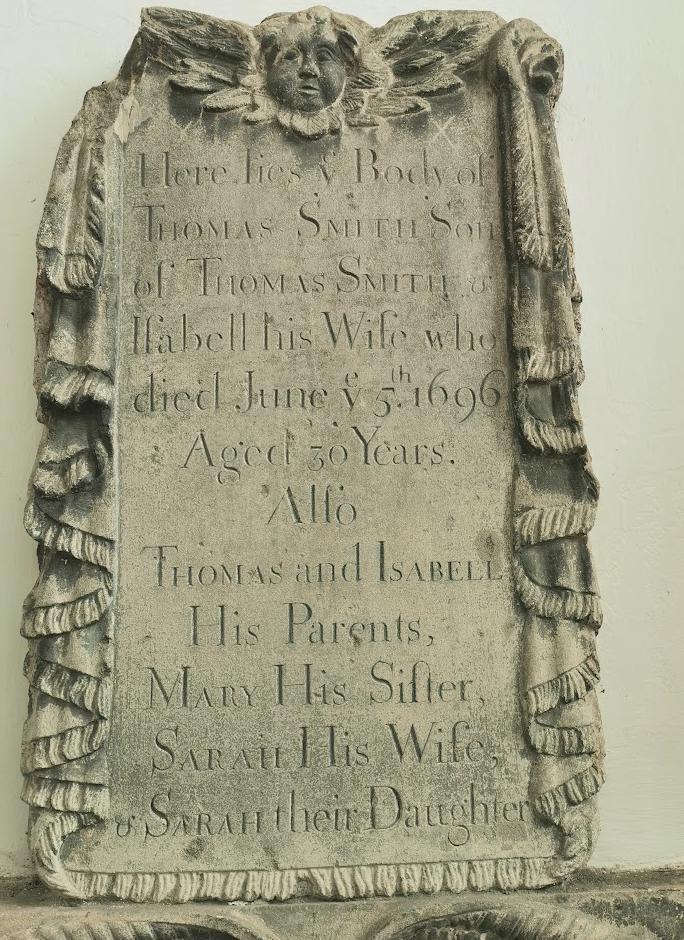 Here lies yͤ Body of
THOMAS SMITH Son
of THOMAS SMITH &
Iſabell his Wife who
died June yͤ 5.th 1696
Aged 30 Years.
Alſo
THOMAS and ISABELL
His Parents,
MARY His Siſter,
SARAH His Wife,
& SARAH their Daughter